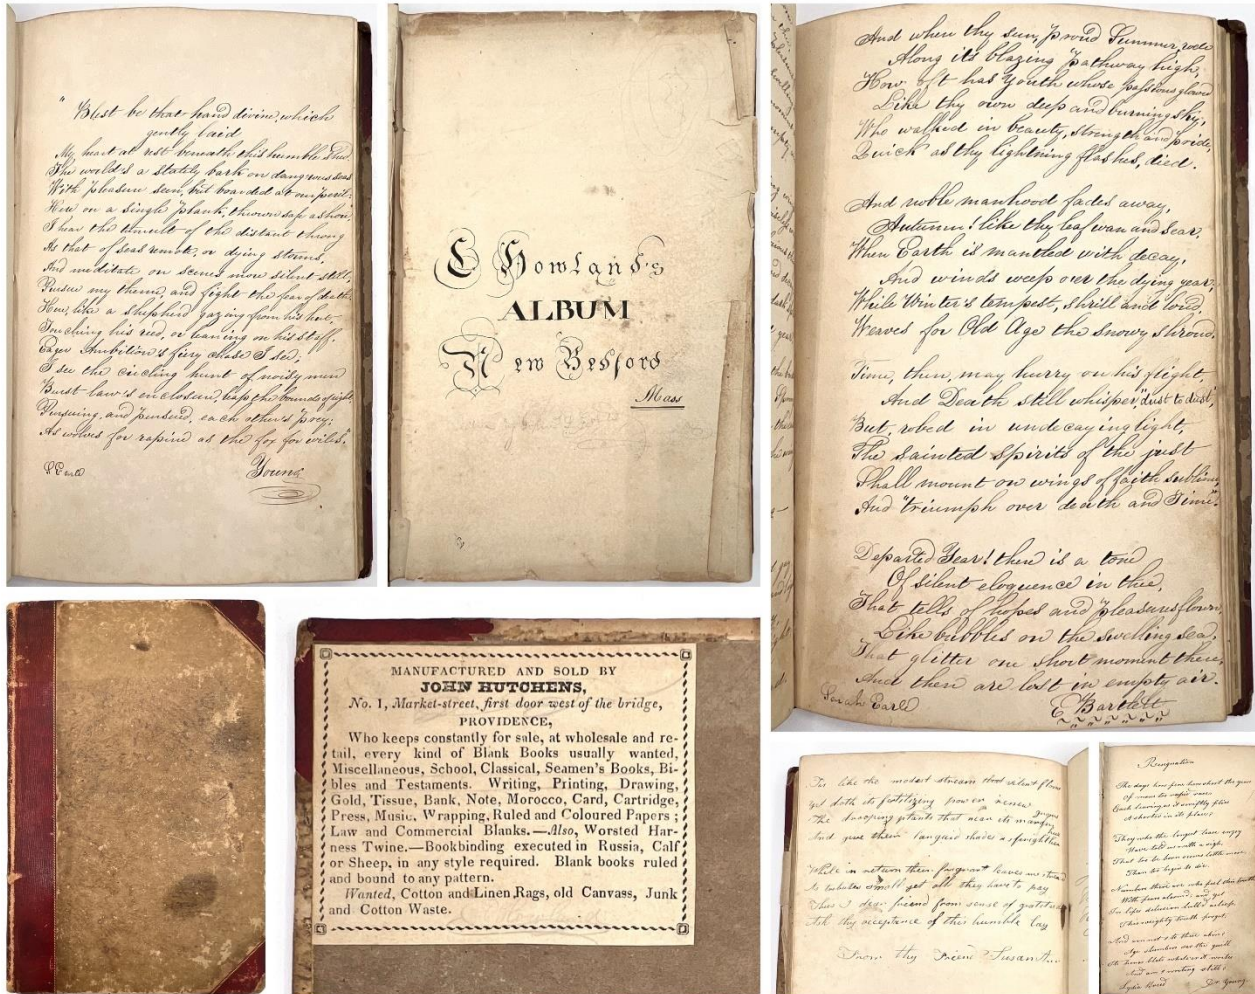 "Blest be that hand divine, which
gently laid
My heart at rest beneath this humble Shed
The world's a stately bark on dangerous seas
With pleasure seen, but boarded at our peril.
Here on a single plank, thrown safe ashore
I hear the tumult of the distant throng
As that of seas remote, or dying storms,
And meditate on scenes more silent still,
Pursue my theme, and fight the fear of death.
Here, like a shepherd gazing from his hut,
Touching his reed, or leaning on his staff.
Eager Ambition's fiery chase I see;
I see the circling hunt of noisy men
Burst law's enclosure, leap the bounds of right
Pursuing, and pursued, each other's prey;
As wolves for rapine as the fox for wiles."
Young
C Howland's
ALBUM
New Bedford
Mass
And when thy sun, proud Summer, rode
Along its blazing pathway high,
How oft has Youth whose passions glowed
Like thy own deep and burning sky,
Who walked in beauty, strength and pride,
Quick as thy lightning flashes, died.
And noble manhood fades away,
Autumn! like thy leaf wan and sear,
When Earth is mantled with decay,
And winds weep over the dying year;
While Winter's tempest, shrill and loud,
Weaves for Old Age the snowy shroud.
Time, then, may hurry on his flight,
And Death still whisper, "dust to dust",
But, robed in undecaying light,
The sainted spirits of the just
Shall mount on wings of faith sublime,
And "triumph over death and Time".
Departed Year! there is a tone
Of silent eloquence in thee,
That tells of hopes and pleasures flown
Like bubbles on the swelling sea,
That glitter one short moment there,
And then are lost in empty air.
Sarah Earle
E Bartlett
MANUFACTURED AND SOLD BY
JOHN HUTCHENS,
No. 1, Market-street, first door west of the bridge,
PROVIDENCE,
Who keeps constantly for sale, at wholesale and re-
tail, every kind of Blank Books usually wanted,
Miscellaneous, School, Classical, Seamen's Books, Bi-
bles and Testaments. Writing, Printing, Drawing,
Gold, Tissue, Bank, Note, Morocco, Card, Cartridge,
Press, Music, Wrapping, Ruled and Coloured Papers;
Law and Commercial Blanks.—Also, Worsted Har-
ness Twine.—Bookbinding executed in Russia, Calf
or Sheep, in any style required. Blank books ruled
and bound to any pattern.
Wanted, Cotton and Linen Rags, old Canvass, Junk
and Cotton Waste.
like the modest stream silent flows
Yet doth its fertilizing power renew
The drooping plants that near its margin
And give their languid shades a
While in return their fragrant leaves
small yet all they have to pay
Thus I dear friend from sense of gratitude
Ask thy acceptance of this humble lay
From thy Friend Susan Ann
Resignation
The days how few how short the years
of man's too rapid race
Each leaving as it swiftly flies
A shorter in its place
They who the longest lease enjoy
Have told us with a sigh
That to be born seems little more
Than to begin to die.
Numbers there are who feel this truth
With fears alarmed and yet
In life's delusion lull'd asleep
This weighty truth forget.
And am not I to these akin
Age slumbers o'er the quill
Its honor blots whate'er it writes
And am I writing still?
Lydia
Dr Young